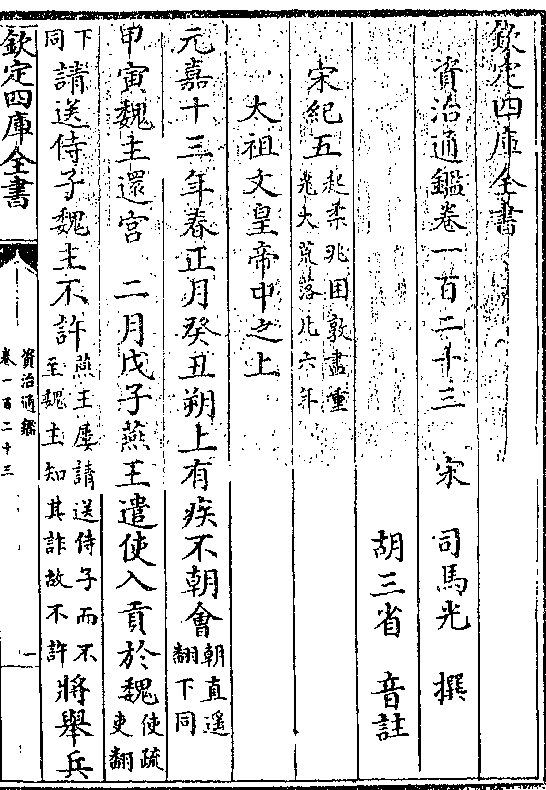 欽定四庫全書
資治通鑑卷一百二十三　宋　司馬光　撰
胡三省　音註
宋紀五起柔兆困敦盡重光大荒落凡六年
太祖文皇帝中之上
元嘉十三年春正月癸丑朔上有疾不朝會朝直遥翻下同
甲寅魏主還宫　二月戊子燕王遣使入貢於魏使疏吏翻
下同請送侍子魏主不許燕王屢請送侍子而不至魏主知其詐故不許將舉兵
欽定四庫全書
資治通鑑
卷一百二十三
一